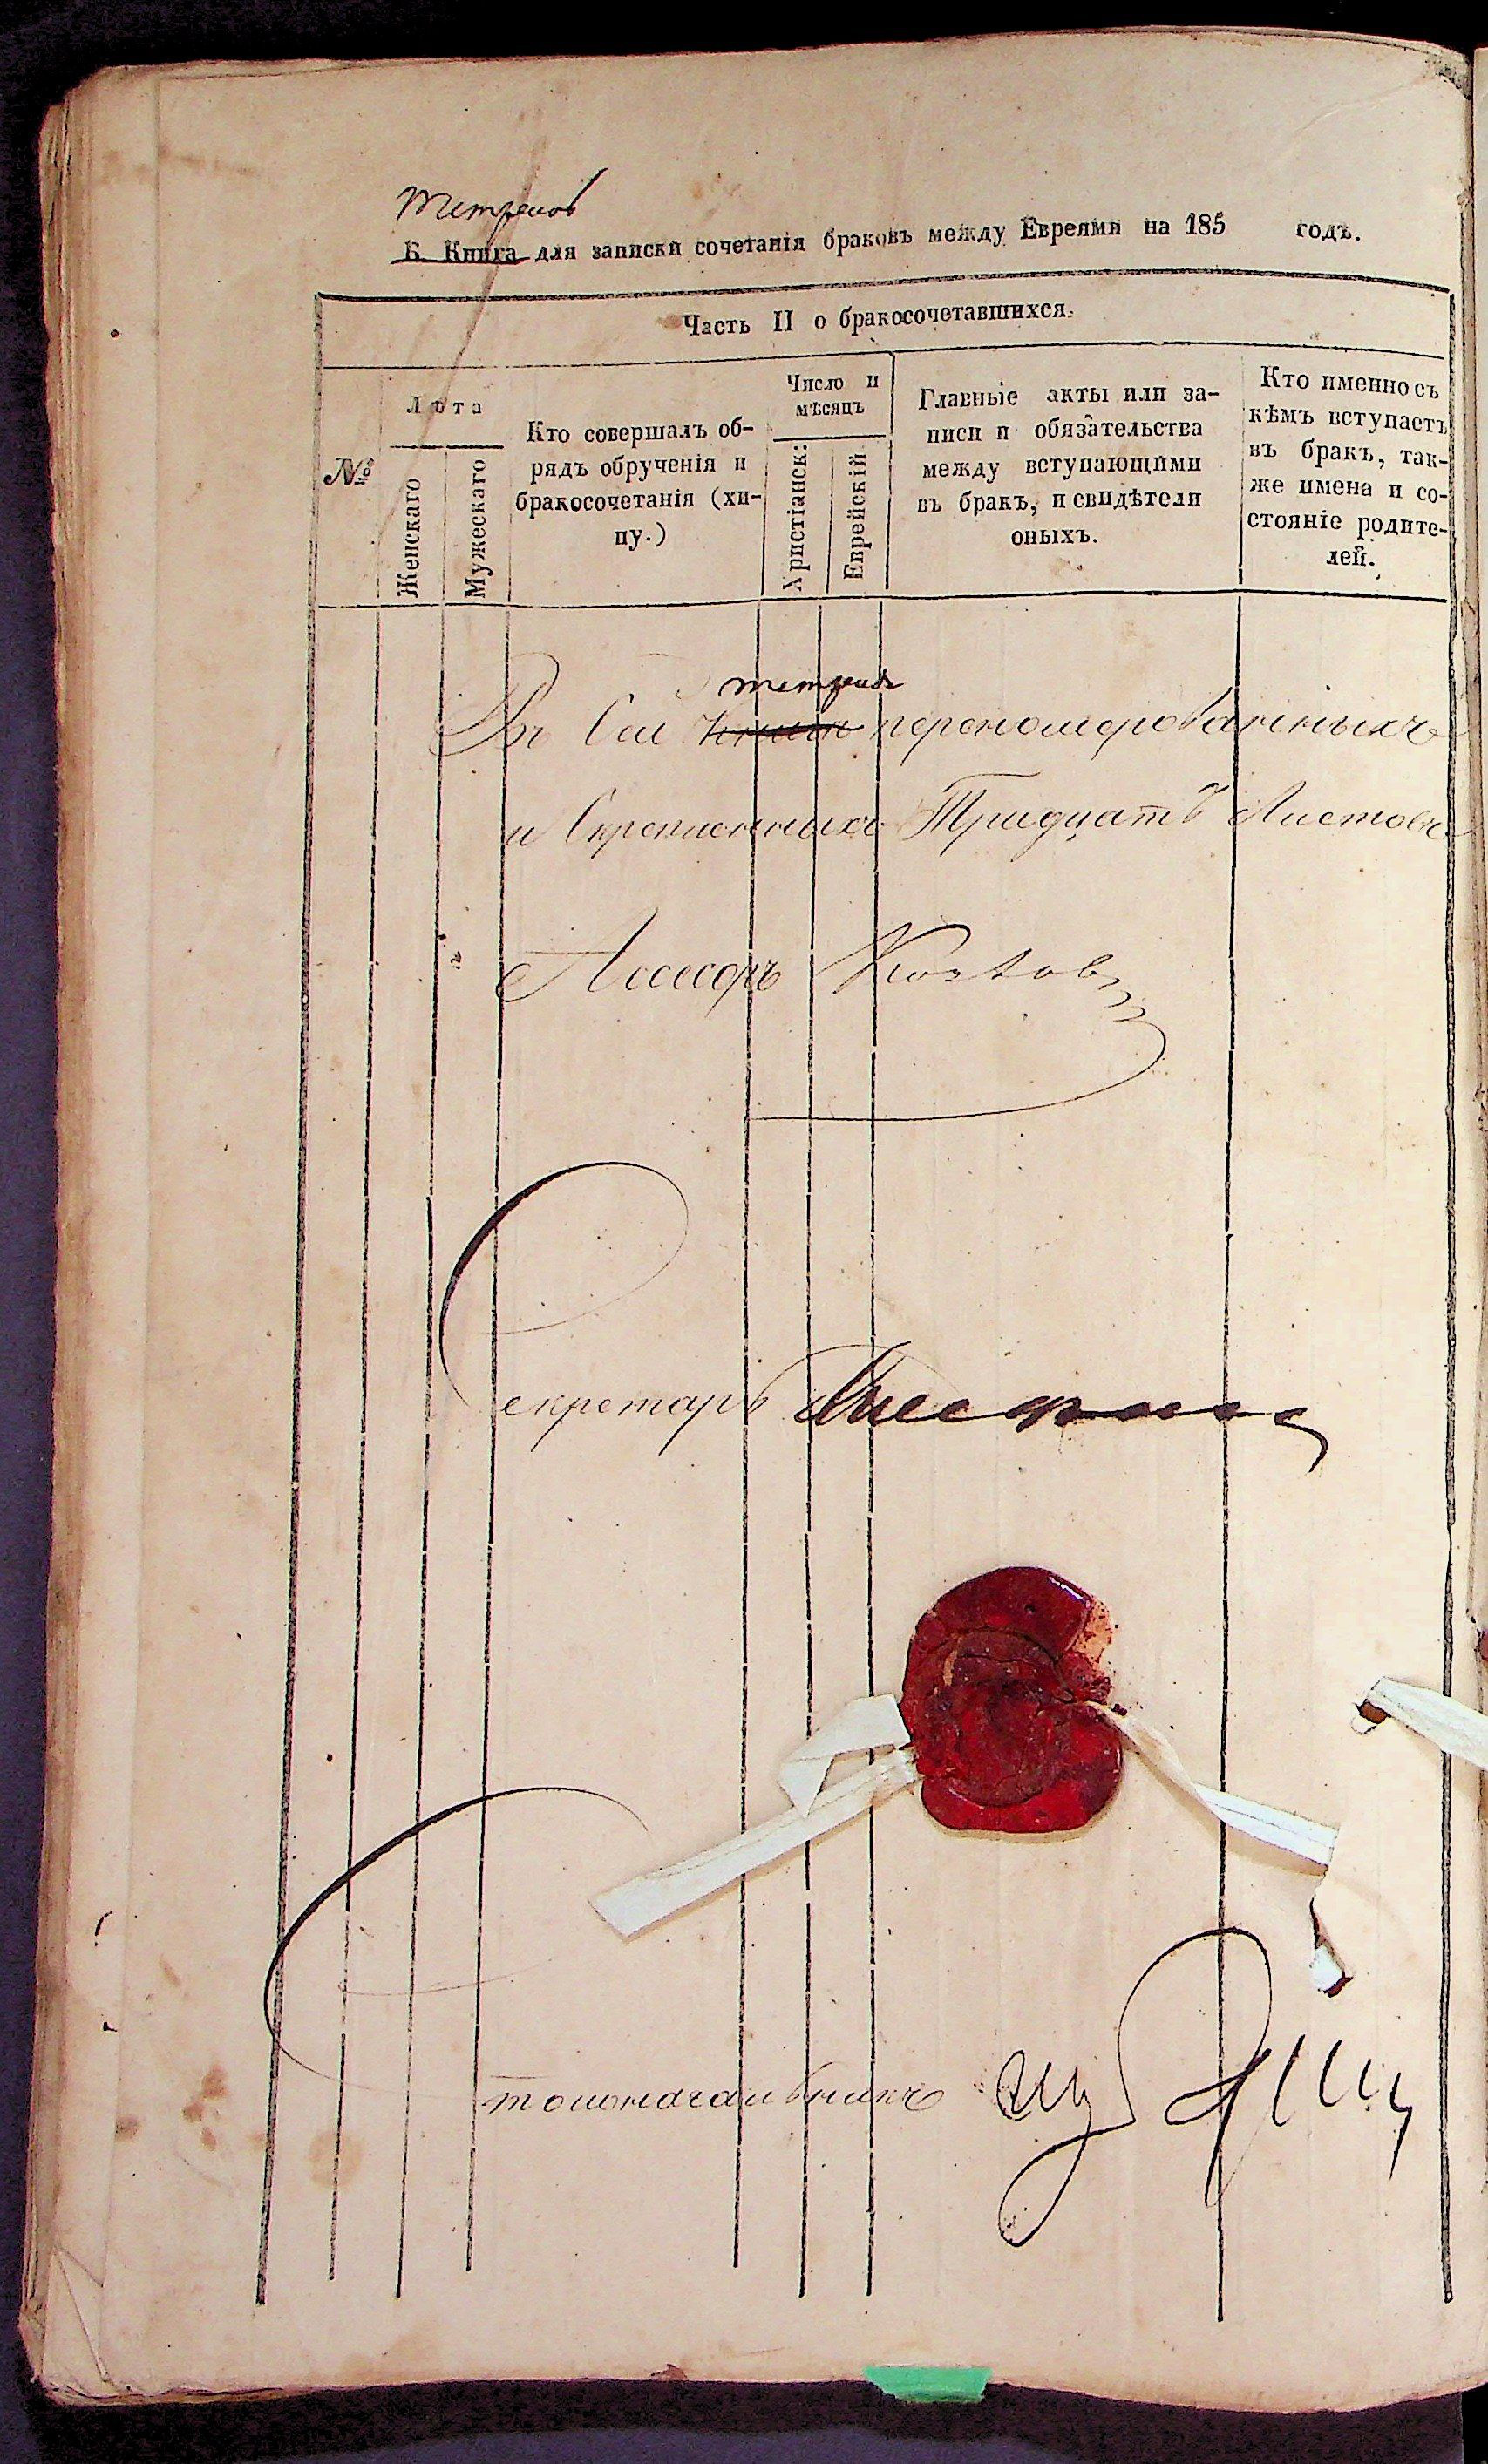 Тетрадь
Б. Книга для записки сочетанія браковъ между Евреями на 185 годъ.
Часть II о бракосочетавшихся.
№
Лѣта
Женскаго
Мужескаго
Кто совершалъ об-
рядъ обрученія и
бракосочетанія (хи-
пу.)
Число и
мѣсяцъ
Христіанск:
Еврейскій
Главныіе акты или за-
писи и обязательства
между вступающими
въ бракъ, и свидѣтели
оныхъ.
Кто именно съ
кѣмъ вступаетъ
въ бракъ, так-
же имена и со-
стояніе родите-
лей.
тетради
Въ Сей книге переномерованныхъ
и Скрепленныхъ Тридцать Листовъ
Асесоръ Козлов
Секретарь
Столоначальникъ